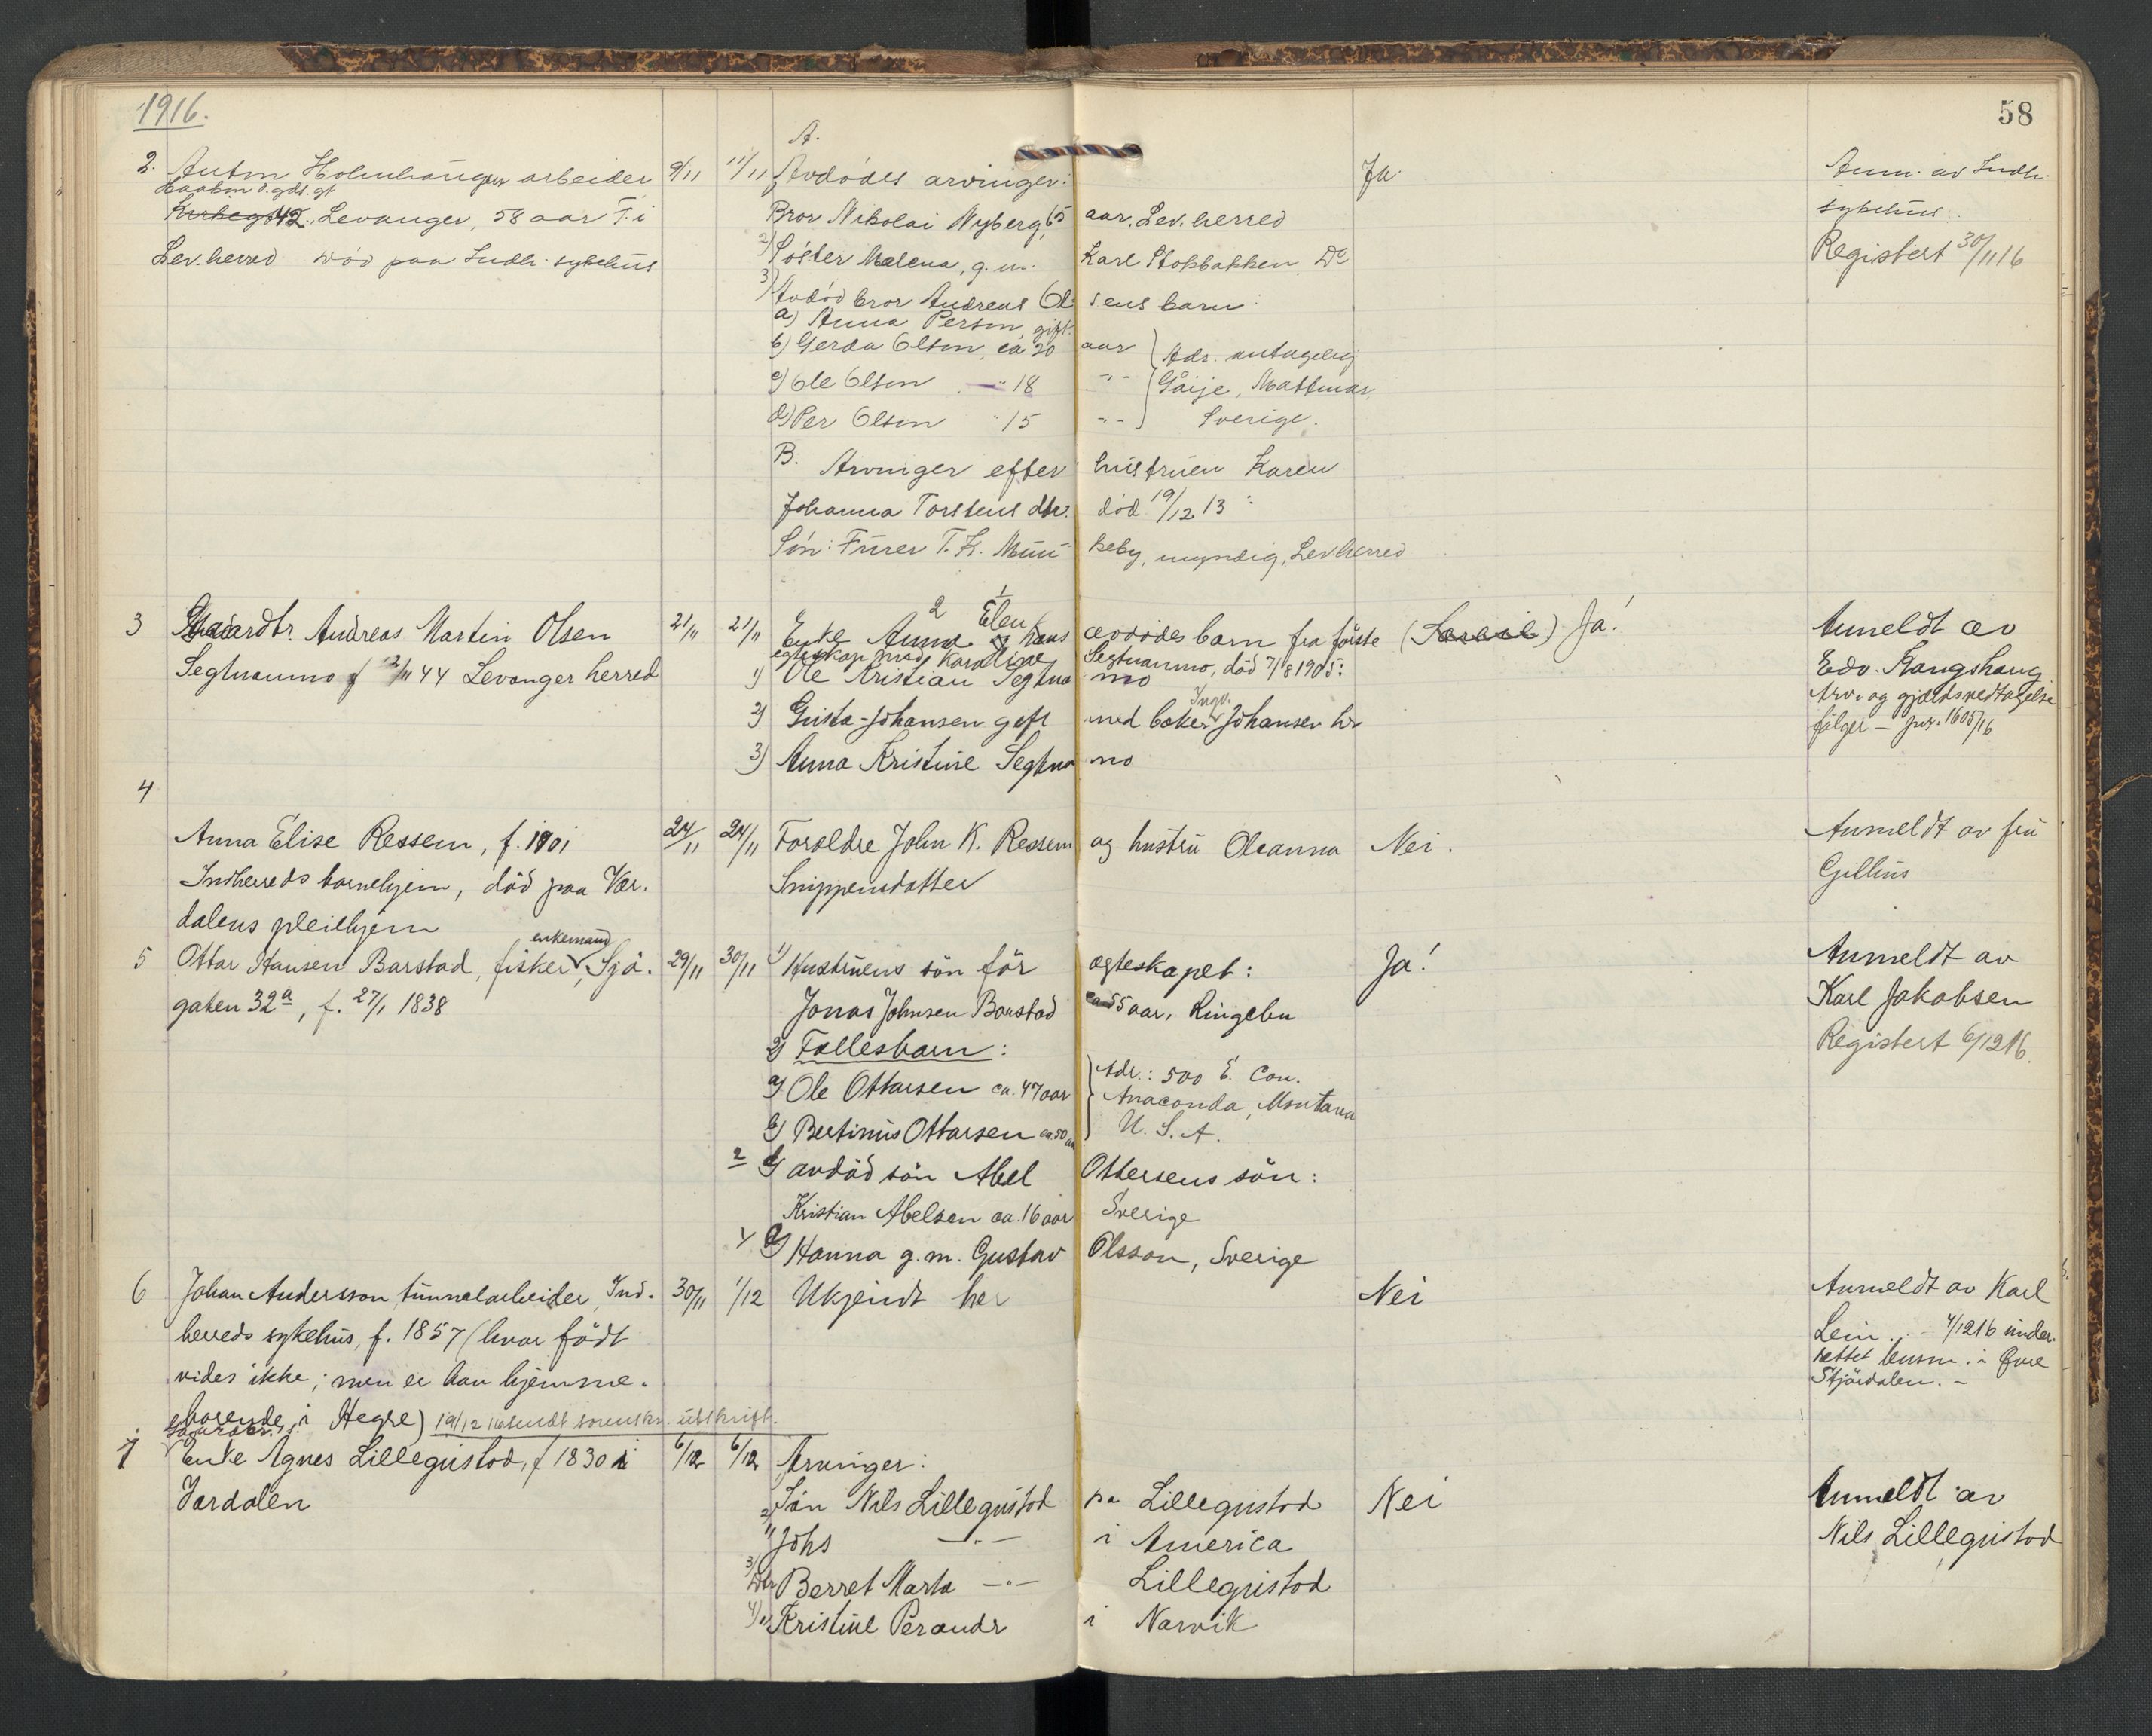 1916.
58
A.
2. Anton Holmhaugen arbeider 9/11 11/11 Avdødes arvinger: Ja. Anm. av Indh.
Haabon d. gds. gt
Kirkegt 42, Levanger, 58 aar F. i 1) Bror Nikolai Nyberg, 65 aar, Lev. herred sykehus.
Lev. herred død paa Indh. sykehus 2) Søster Malena, g. m. Karl Stokbakken Do Registert 30/11 16
3) Avdød bror Andreas Olsens barn:
a) Anna Person, gift.
b) Gerda Olsen, ca 20 aar } Adr. antagelig
c) Ole Olsen -"- 18 -"- } Gåije, Mattmar,
d) Per Olsen " 15 -"- } Sverige.
B. Arvinger efter hustruen Karen
Johanna Torstensdtr. død 19/12 13:
Søn: Furer T. K. Munkeby, myndig, Lev. herred
2 1
3 Gaardbr. Andreas Martin Olsen 21/11 21/11 Enke Anna Elen & hans avdødes barn fra første () Ja! Anmeldt av
Segtnanmo f 2/11 44 Levanger herred egteskap med Karoline Segtnanmo, død 7/8 1905: Edv. Stangshaug
1) Ole Kristian Segtnanmo Arv- og gjældsvedtagelse
2) Gusta Johansen gift med baker Ingv. Johansen her følger - jnr. 1605/16
3) Anna Kristine Segtnanmo
4
Anna Elise Ressem, f. 1901 24/11 24/11 Foreldre John K. Ressem og hustru Oleanna Nei. Anmeldt av fru
Indherreds barnehjem, død paa Vær- Snippensdatter Gillius
dalens pleiehjem
5 Ottar Hansen Barstad, fisker, enkemand, Sjø- 29/11 30/11 1) Hustruens søn før egteskapet: Ja! Anmeldt av
gaten 32a, f. 27/1 1838 Jonas Johnsen Barstad ca 55 aar, Ringebu Karl Jakobsen
2) Fællesbarn: Registert 6/12 16.
a) Ole Ottarsen ca. 47 aar } Adr.: 500 E. Con.
b) Bertinus Ottarsen ca. 50 aar } Anaconda, Montana U. S. A.
2 c) avdød søn Abel Ottersens søn:
Kristian Abelsen ca. 16 aar Sverige
1 d) Hanna g. m. Gustav Olsson, Sverige
6 Johan Andersson, tunnelarbeider, Ind- 30/11 1/12 Ukjendt her Nei Anmeldt av Karl
herreds sykehus, f. 1857 (hvor født Lein. - 4/12 16 under-
vides ikke; men er han hjemme- rettet lensm. i Øvre
hørende i Hegre) 19/12 16 sendt sorenskr. utskrift. Stjørdalen. -
7 Gaardbr. Enke Agnes Lillegustad, f 1830 i 6/12 6/12 Arvinger:
Værdalen 2) Søn Nils Lillegustad pa Lillegustad Nei Anmeldt av
1) " Johs -"- i America Nils Lillegustad
3) Dtr Berret Marta -"- Lillegustad
4) " Kristine Perandr i Narvik